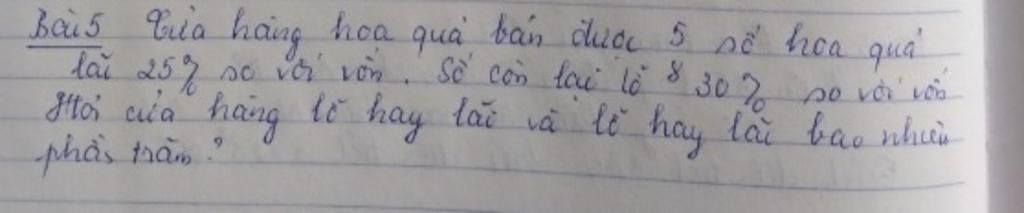 Bài 5 Cửa hàng hoa quả bán được 5/8 số hoa quả
lãi 25% so với vốn. Số còn lại lỗ 30% so với vốn
Hỏi cửa hàng lỗ hay lãi và lỗ hay lãi bao nhiêu
phần trăm?